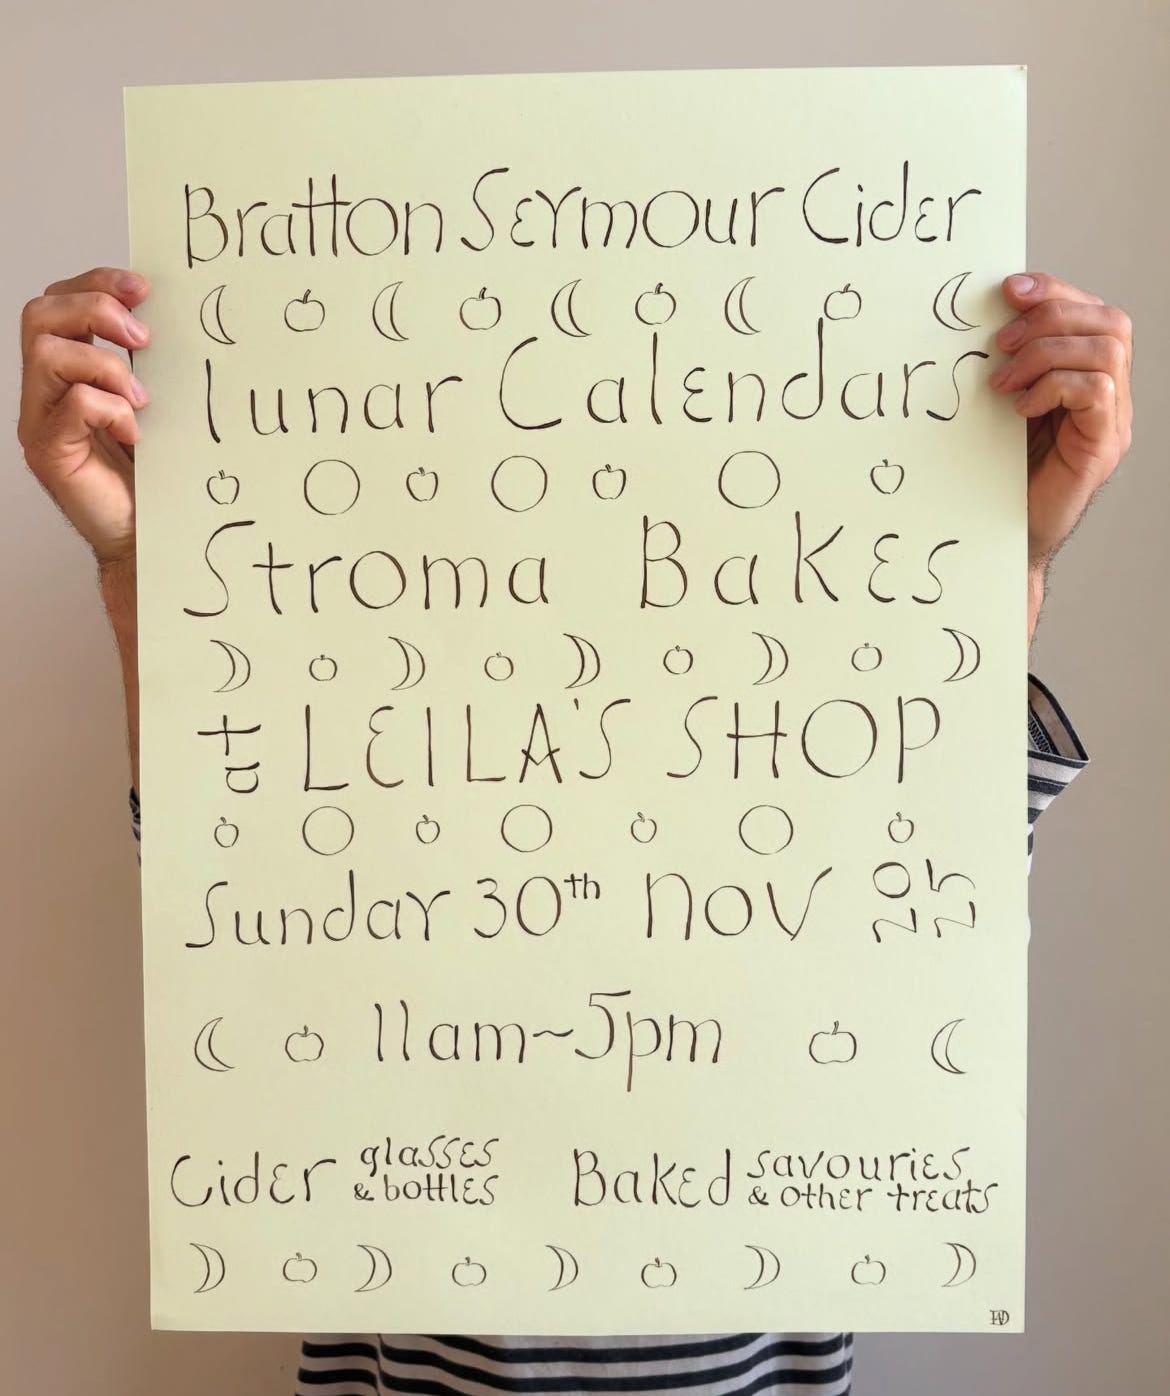 Bratton Seymour Cider
lunar Calendars
Stroma Bakes
at LEILA'S SHOP
Sunday 30th Nov 2025
11am~5pm
Cider glasses & bottles
Baked savouries & other treats